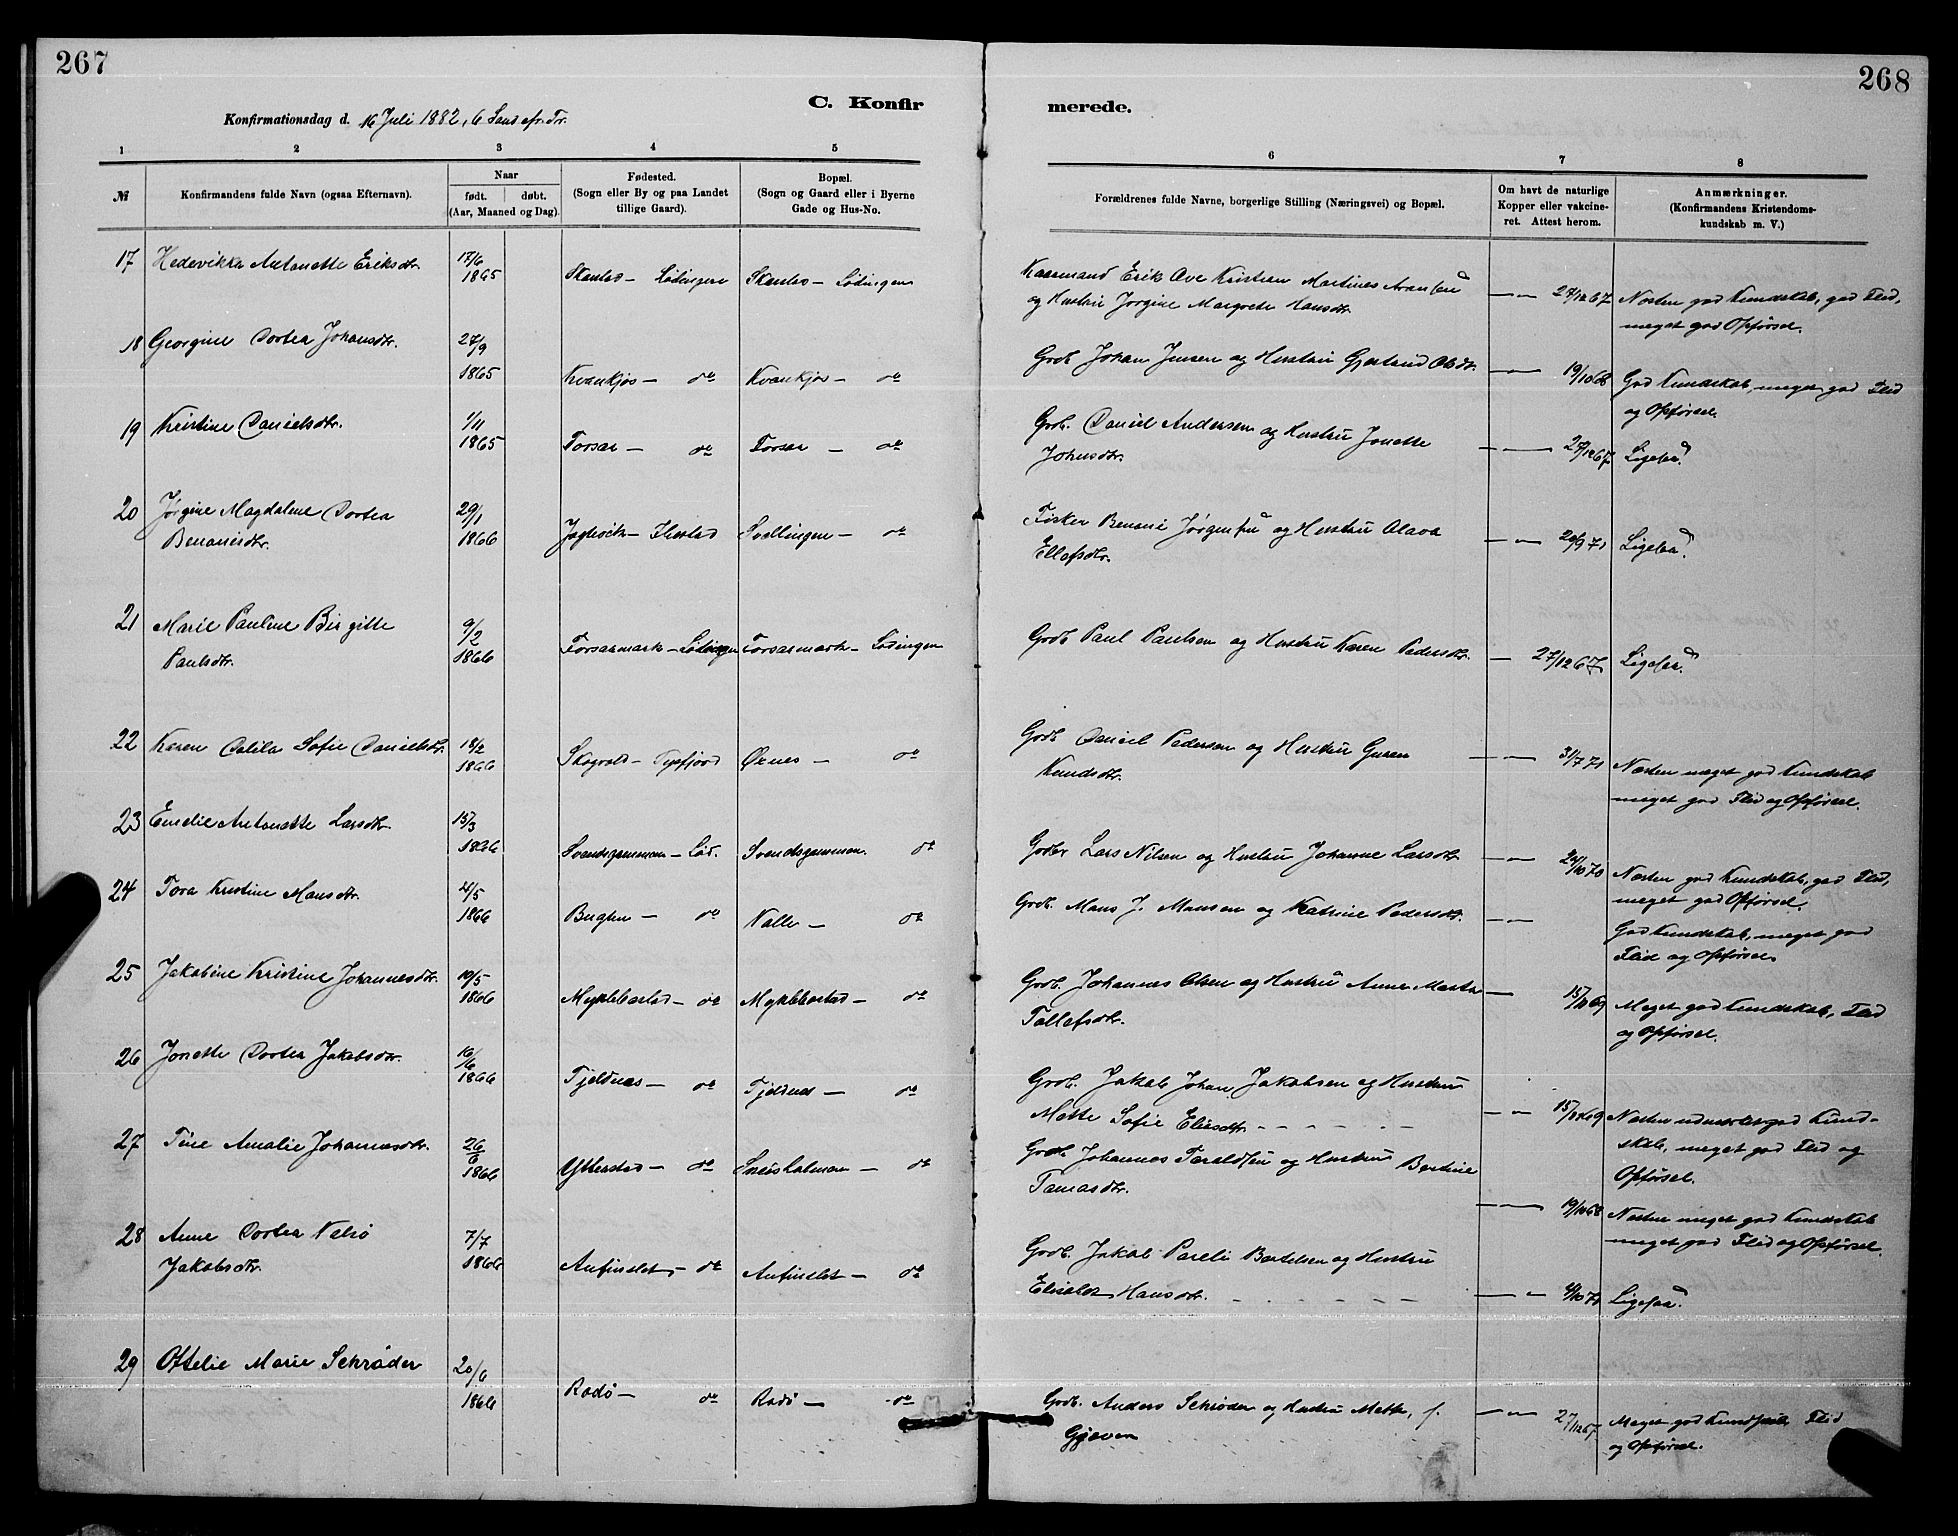 267
268
C. Konfir
merede.
Konfirmationsdag d. 16 Juli 1882, 6 Sønd. ef. Tr.
1 2 3 4 5 6 7 8
№
Konfirmandens fulde Navn (ogsaa Efternavn).
Naar
født. døbt.
(Aar, Maaned og Dag).
Fødested.
(Sogn eller By og paa Landet
tillige Gaard).
Bopæl.
(Sogn og Gaard eller i Byerne
Gade og Hus-No.
Forældrenes fulde Navne, borgerlige Stilling (Næringsvei) og Bopæl.
Om havt de naturlige
Kopper eller vakcine-
ret. Attest herom.
Anmærkninger.
(Konfirmandens Kristendoms-
kundskab m. V.)
17 Hedevikka Antonette Eriksdtr. 17/6 1865 – Lødingen – Lødingen
Kaarmand Erik Ove Kristian Martines
og Hustru Jørgine Margrete Hansdtr. — 27/12 67 Næsten god Kundskab, god Flid,
meget god Opførsel.
18 Georgine Dortea Johansdtr. 27/9 1865 Kvankjos – do Kvankjos – do
Grdb. Johan Jensen og Hustru Gjertrud Olsdtr. — 19/10 68 God Kundskab, meget god Flid
og Opførsel.
19 Kristine Danielsdtr. 1/11 1865 Forsar – do Forsar – do
Grdb. Daniel Andersen og Hustru Jonette
Johnsdtr. — 27/12 67 Ligesaa.
20 Jørgine Magdalene Dortea
Benonisdtr. 29/1 1866 Svellingen – do
Fisker Benoni Jørgensen og Hustru Olava
Ellefsdtr. — 20/9 71 Ligesaa.
21 Marie Pauline Birgitte
Paulsdtr. 9/2 1866 Forsarmark – Lødingen Forsarmark – Lødingen
Grdb. Paul Paulsen og Hustru Karen Pedersdtr. — 27/12 67 Ligesaa.
22 Karen Dalila Sofie Danielsdtr. 18/2 1866 – Tysfjord Øxnes – do
Grdb. Daniel Pedersen og Hustru Guren
Knudsdtr. — 31/7 71 Næsten meget god Kundskab
meget god Flid og Opførsel.
23 Emelie Antonette Larsdtr. 15/3 1866 Svendsgammen – Lød. Svendsgammen. do
Grdbr Lars Nilsen og Hustru Johanne Larsdtr. — 24/10 70 Næsten god Kundskab, god Flid,
meget god Opførsel.
24 Tora Kristine Mansdtr. 4/5 1866 Bugten – do Valle – do
Grdb. Mans J. Mansen og Katrine Pedersdtr. — God Kundskab, meget god
Flid og Opførsel.
25 Jakobine Kristine Johannesdtr. 19/5 1866 Myklebostad – do Myklebostad – do
Grdb. Johannes Olsen og Hustru Anne Marta
Tollefsdtr. — 15/11 69 Meget god Kundskab, Flid
og Opførsel.
26 Jonette Dortea Jakobsdtr. 16/6 1866 Tjeldnes – do Tjeldnes – do
Grdb. Jakob Johan Jakobsen og Hustru
Mette Sofie Eliasdtr. — Næsten udmærket god Kund-
skab, meget god Flid og
Opførsel.
27 Tine Amalie Johannesdtr. 26/6 1866 Ytterstad – do – do
Grdb. Johannes Taraldsen og Hustru Bertine
Tomasdtr. — 19/10 68 Næsten meget god Kundskab
meget god Flid og Opførsel.
28 Anne Dortea
Jakobsdtr. 7/7 1866 Anfinslet – do Anfinslet – do
Grdb. Jakob Pareli Bertelsen og Hustru
Elisabet Hansdtr. — Ligesaa.
29 Ottelie Marie Schrøder 20/6 1866 Rodø – do Rodø – do
Grdb. Anders Schrøder og Hustru Mette, f.
Gjæver — 27/12 67 Meget god Kundskab, Flid
og Opførsel.